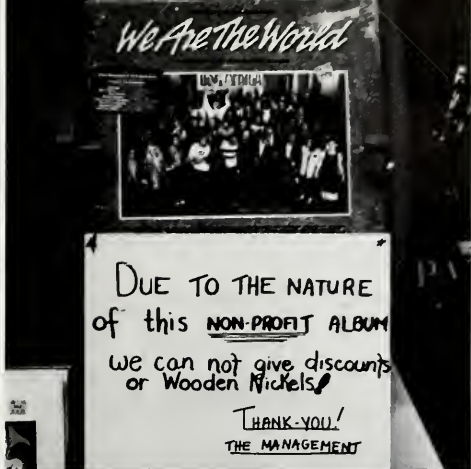 We Are The World
DUE TO THE NATURE
of this NON-PROFIT ALBUM
we can not give discounts
or Wooden Nickels!
THANK-YOU!
THE MANAGEMENT